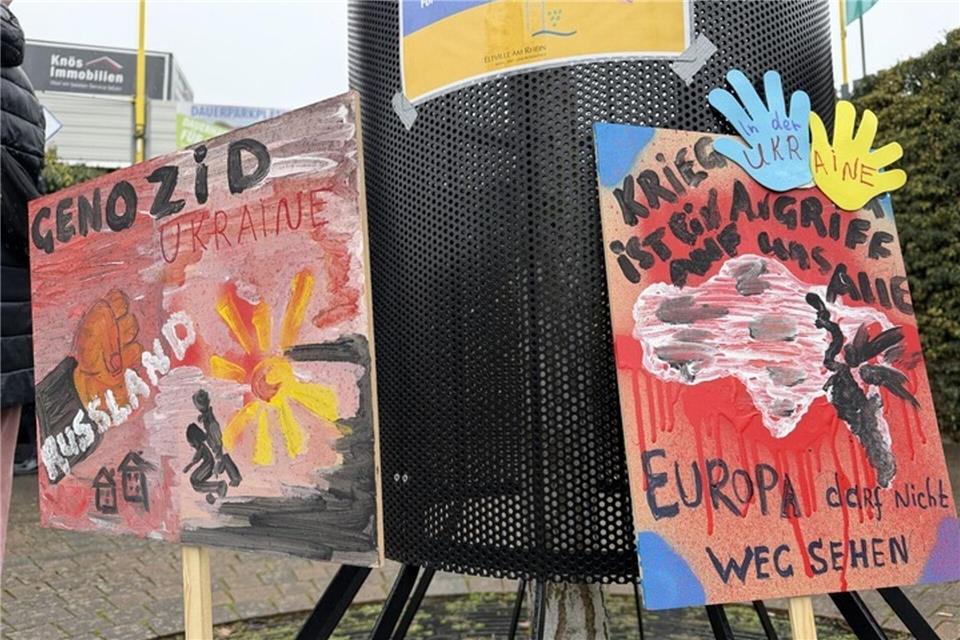 Knös
Immobilien
DAUERPARKPLÄTZE
ELTVILLE AM RHEIN
GENOZiD
UKRAiNE
RUSSLAND
In der
UKRAINE
KRIEG
iST EiN ANGRiFF
AUF UNS
ALLE
EUROPA darf Nicht
WEG SEHEN